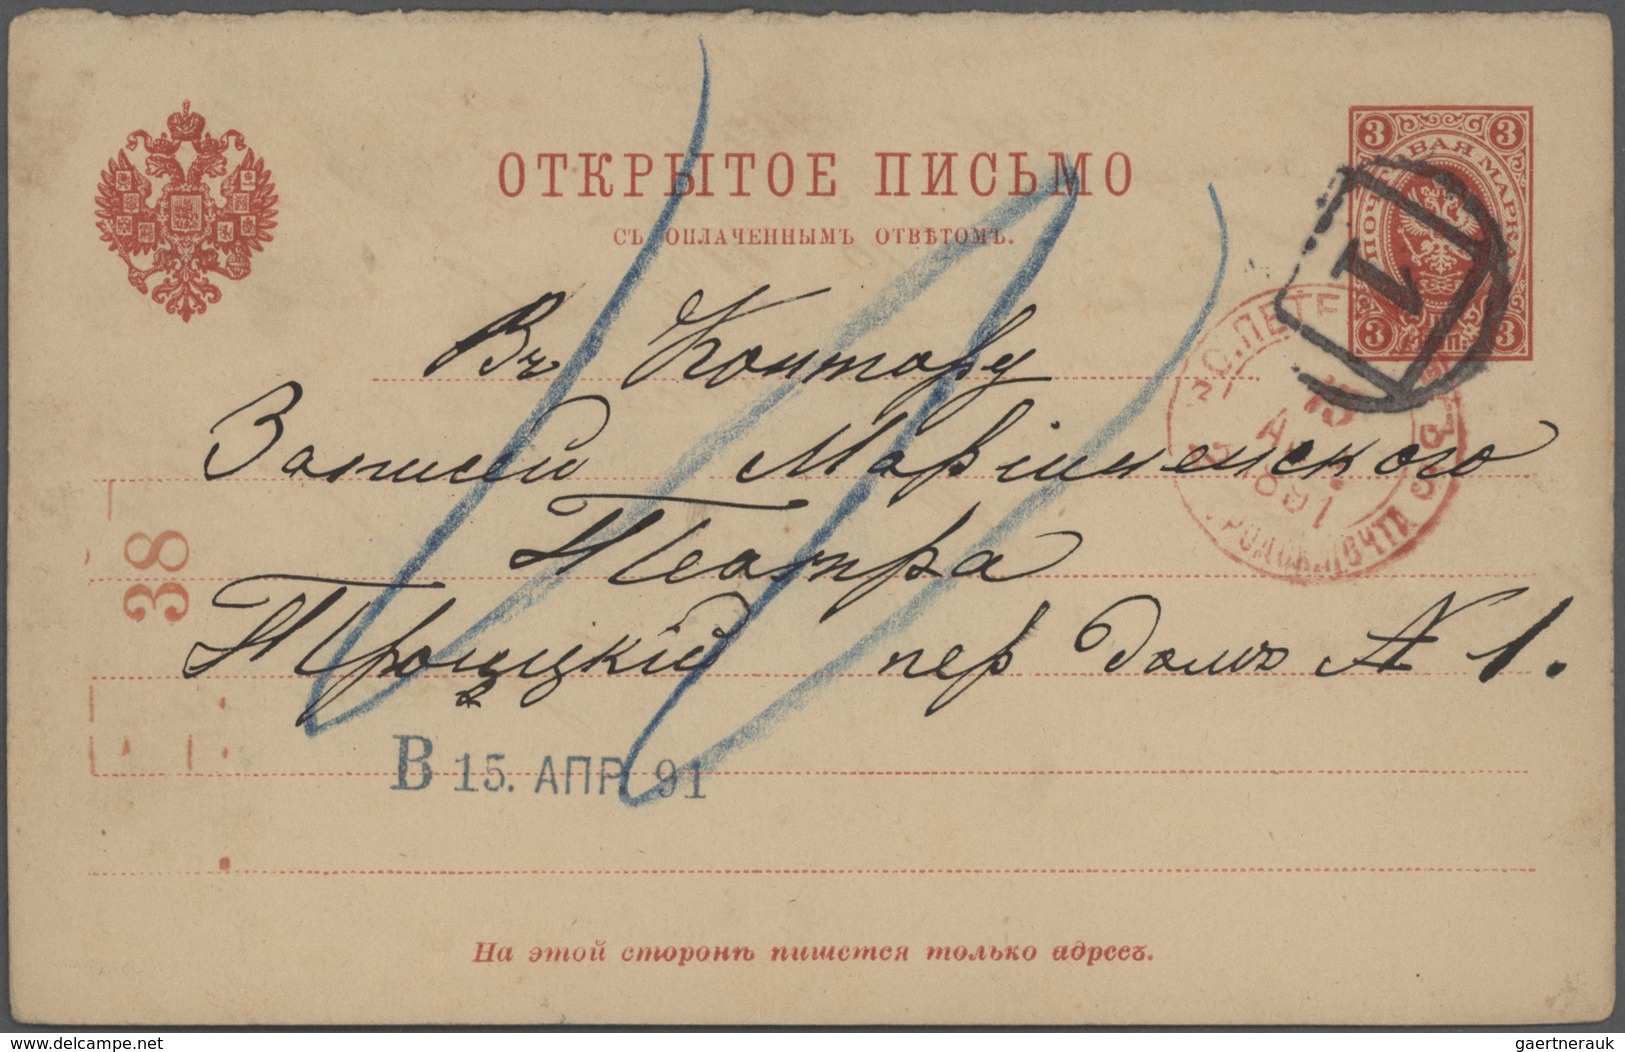 ОТКРЫТОЕ ПИСЬМО
СЪ ОПЛАЧЕННЫМЪ ОТВѢТОМЪ.
3 3
ПОЧ ОВАЯ МАРКА
3 КОП. 3
1
С.ПЕТЕ
15
АПР
1891
ГОРОДСК.ПОЧТА
Въ Контору
Записки Маріинскаго
Театра
Троицкій пер домъ № 1.
38
В 15. АПР 91
На этой сторонѣ пишется только адресъ.
delcampe.net
gaertnerauk